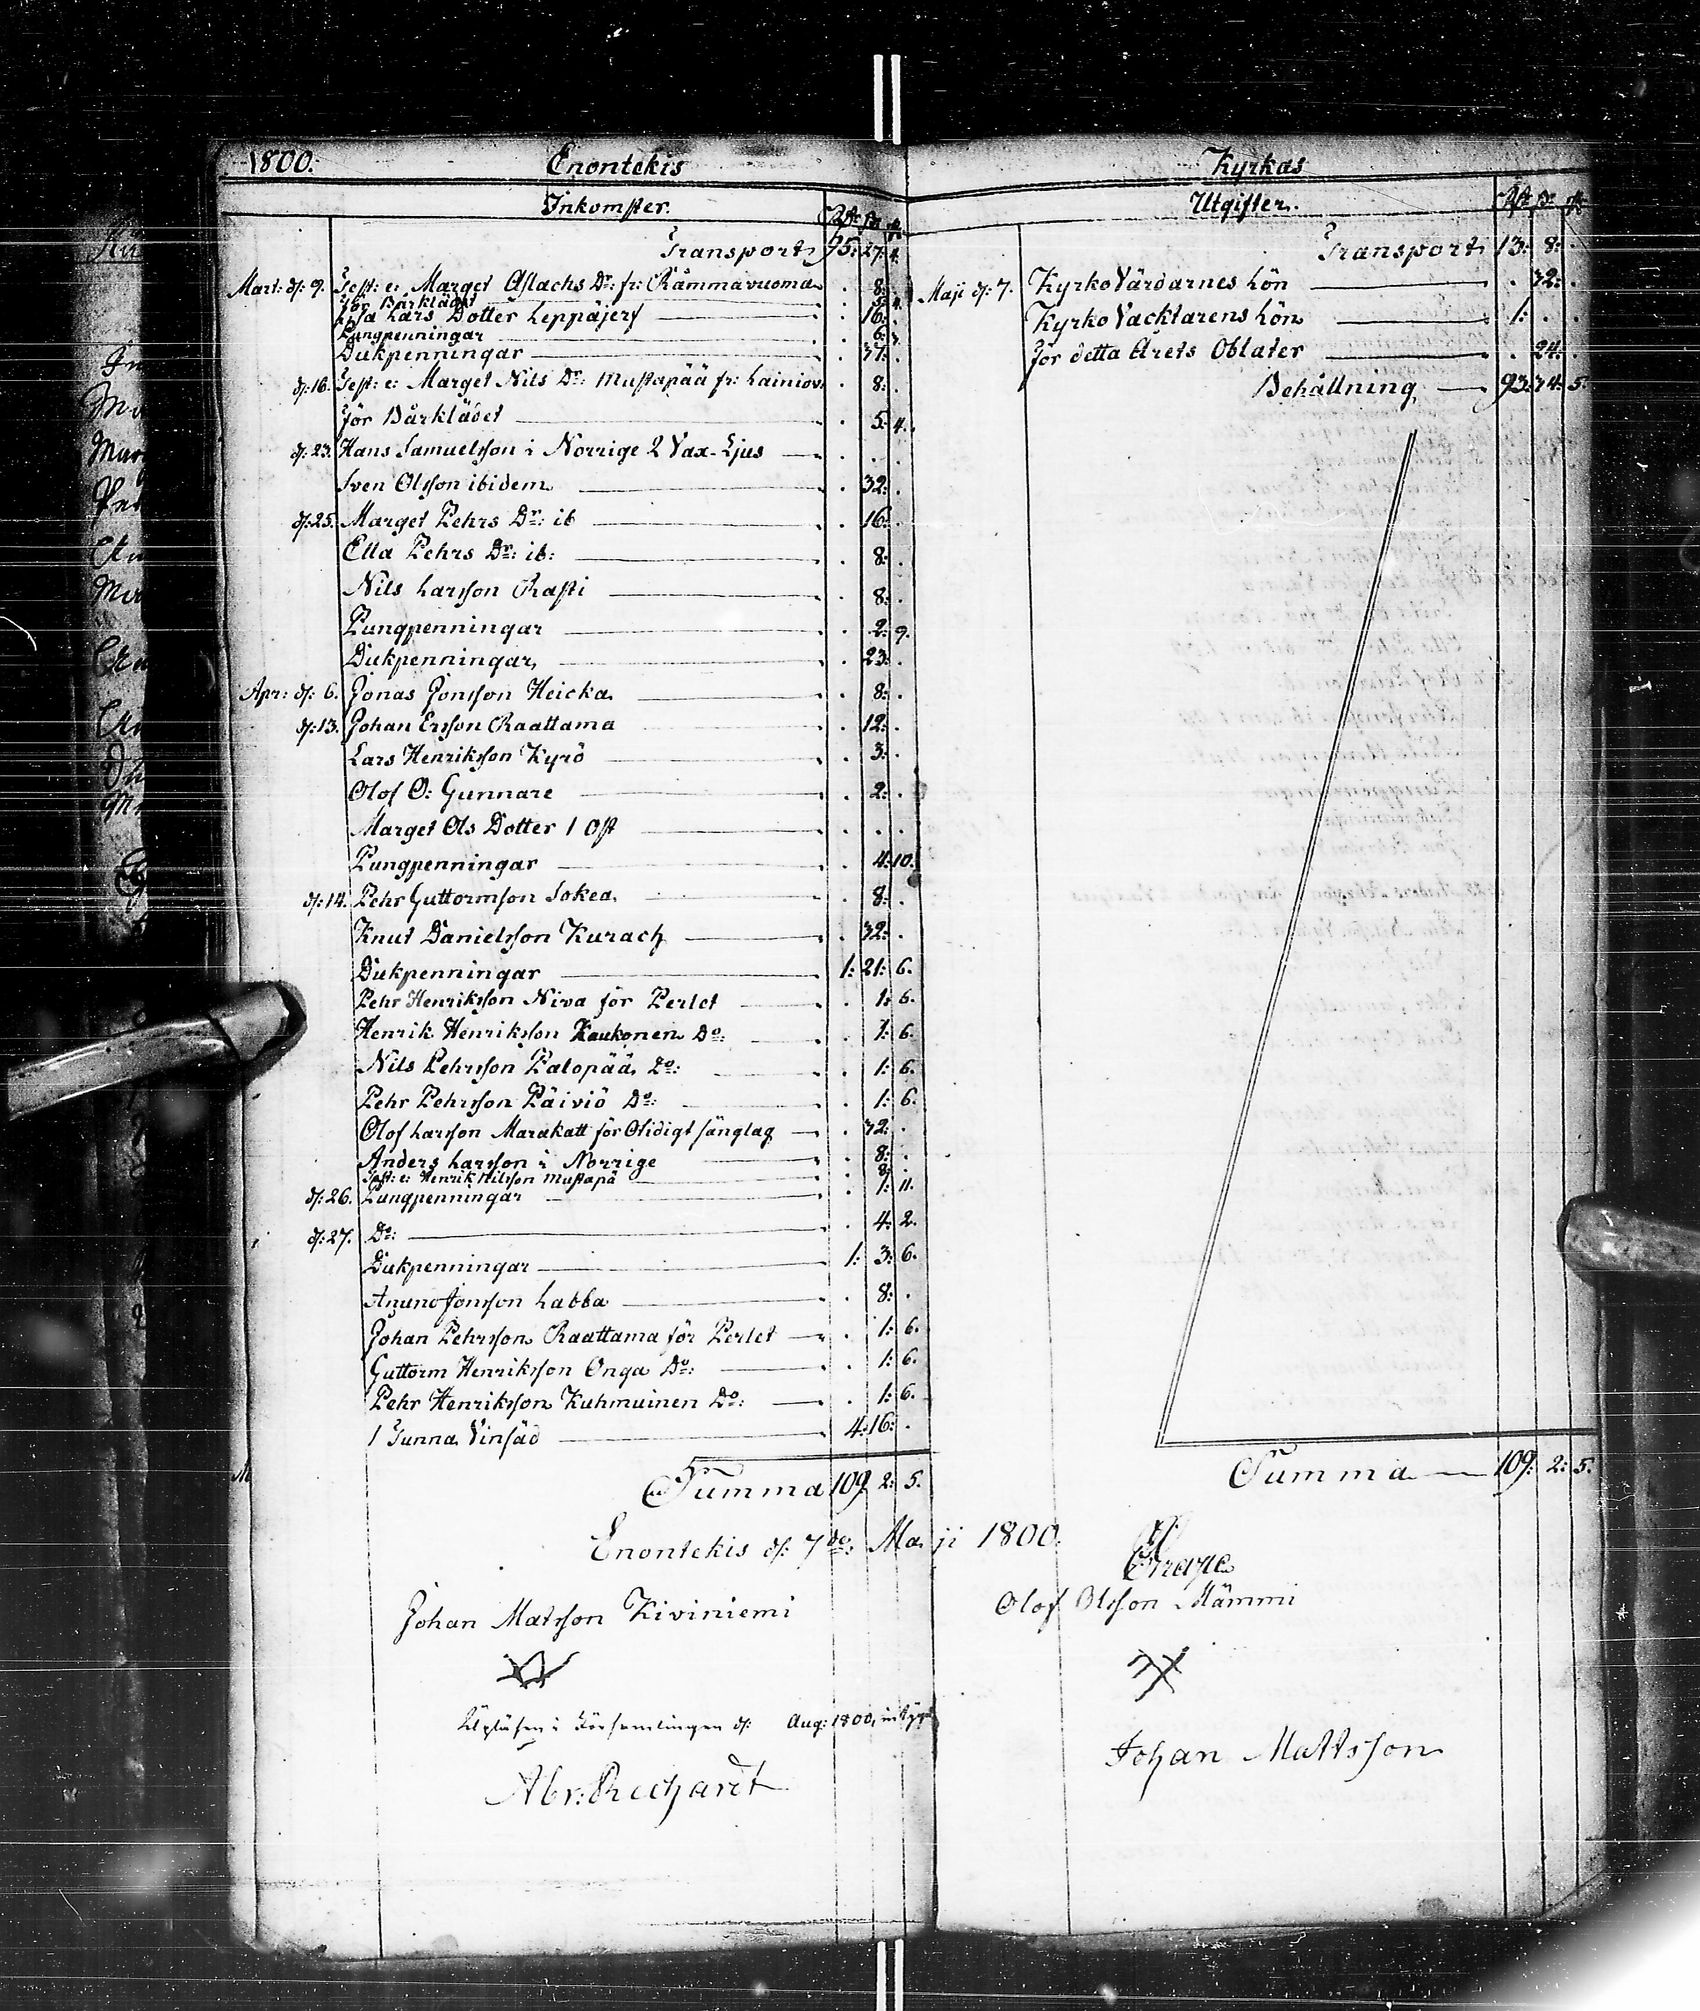 1800. Enontekis
Inkomster. Rd: ß: r:
Transport 95: 27: 4.
Mart: d: 9. Test: e: Marget Aslachs Dr: fr: Rämmavuoma . 8: .
för Bårklädet . 5: 4.
Lars Dotter Leppäjerf . 16: .
Pungpenningar . 6:
Dukpenningar . 37: .
d: 16. Test: e: Marget Nils Dr: Mustapää fr: Lainiov. . 8: .
för Bårklädet . 5: 4.
d: 23. Hans Samuelsson i Norrige 2 Vax-Ljus . . .
Sven Olsson ibidem . 32: .
d: 25. Marget Pehrs Dr: ib . 16: .
Ella Pehrs Dr: ib: . 8: .
Nils Larsson Rasti . 8: .
Pungpenningar . 2: 9.
Dukpenningar . 23: .
Apr: d: 6. Jonas Jonsson Heicka . 8: .
d: 13. Johan Ersson Raattama . 12: .
Lars Henriksson Kyrö . 3: .
Olof O: Gunnare . 2: .
Marget Ols Dotter 1 Ost . . .
Pungpenningar . 4: 10.
d: 14. Pehr Guttormson Sokea . 8: .
Knut Danielsson Kurach . 32: .
Dukpenningar 1: 21: 6.
Pehr Henriksson Niva för Perlet . 1: 6.
Henrik Henriksson Kaukonen Do: . 1: 6.
Nils Pehrsson Palopää Do: . 1: 6.
Pehr Pehrsson Päiviö Do: . 1: 6.
Olof Larsson Marakatt för Otidigt sänglag . 32: .
Anders Larsson i Norrige . 8: .
Test: e: Henrik Nilsson Mustapä . 8: .
d: 26. Pungpenningar . 1: 11.
d: 27. Do: . 4: 2.
Dukpenningar 1: 3: 6.
Anund Jonsson Labba . 8: .
Johan Pehrsson Raattama för Perlet . 1: 6.
Guttorm Henriksson Onga Do: . 1: 6.
Pehr Henriksson Kuhmuinen Do: . 1: 6.
1 Tunna Vinsäd 4: 16: .
Summa 109 2: 5.
Kyrkas
Utgifter. Rd: ß: r:
Transport 13: 8: .
Maji d: 7. Kyrko Värdarnes Lön . 32: .
Kyrko Vacktarens Lön 1: . .
för detta Årets Oblater . 24: .
Behållning 93: 34: 5.
Summa 109: 2: 5.
Enontekis d: 7de: Maji 1800.
Johan Matsson Kiviniemi
Olof Olsson Mämmi
Upläsen i Församlingen d: Aug: 1800,
Johan Mattsson
Abr: Rechardt